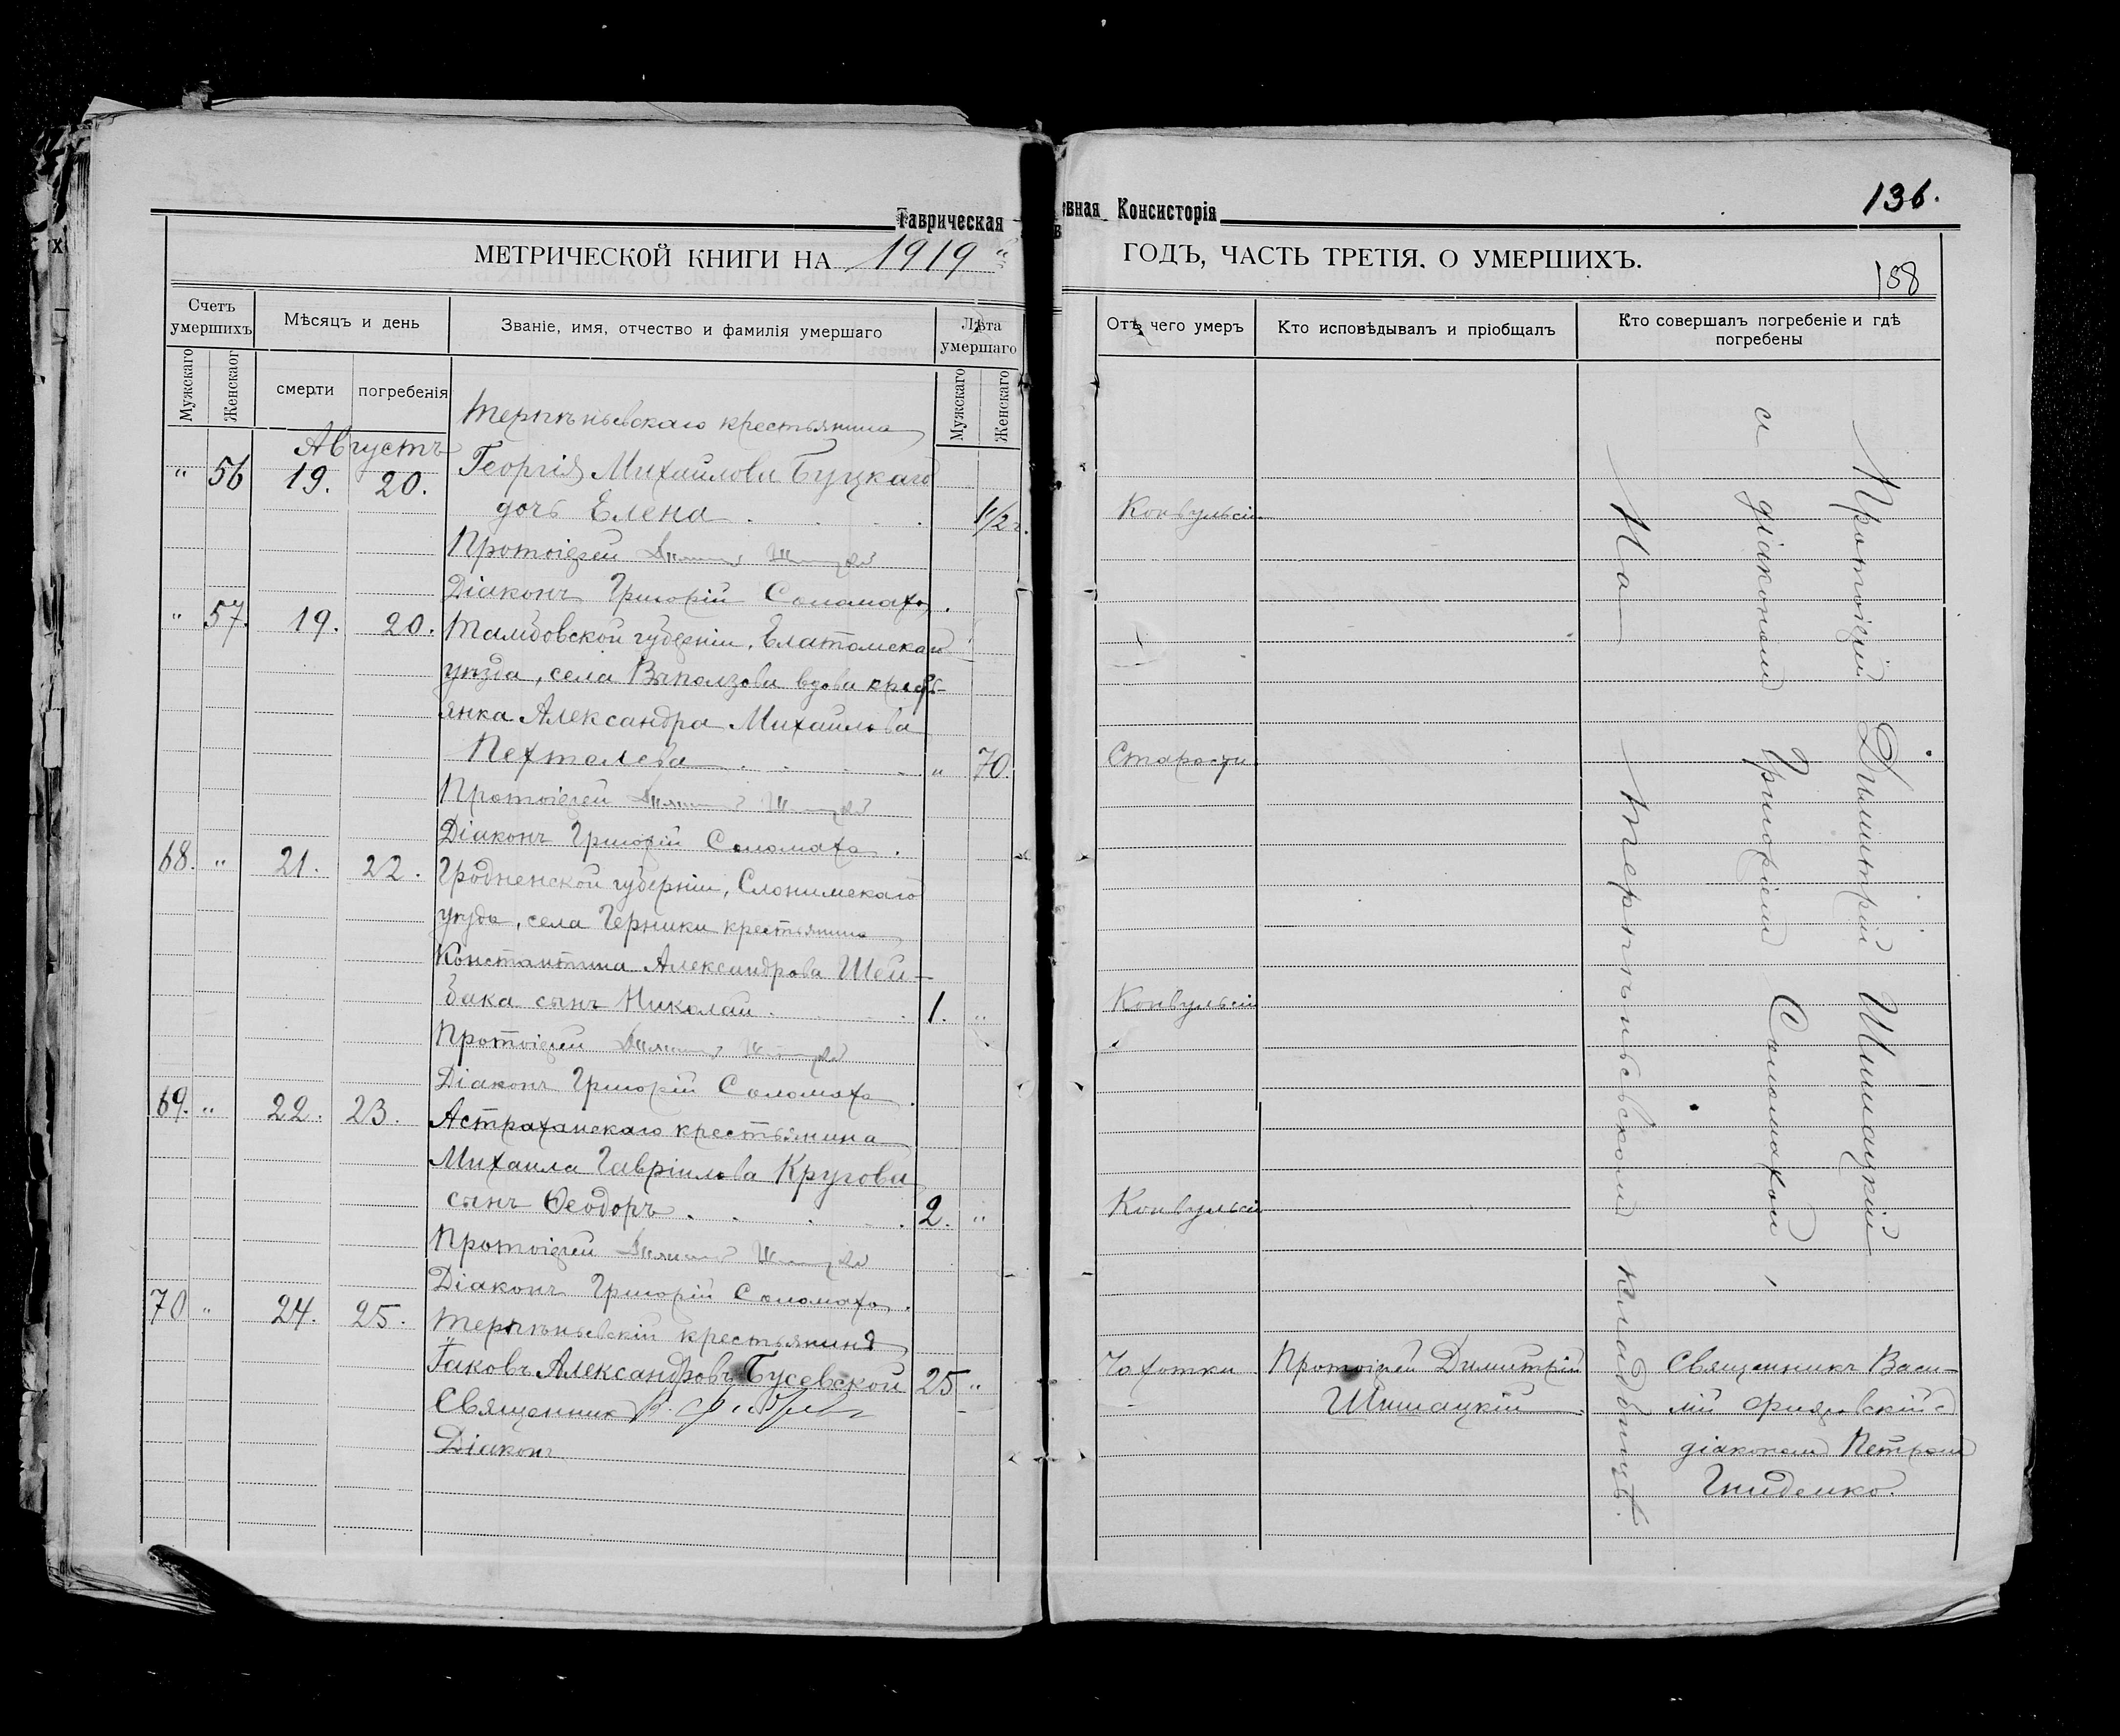 Таврическая
МЕТРИЧЕСКОЙ КНИГИ НА 1919
Счетъ умершихъ
Мѣсяцъ и день
Званіе, имя, отчество и фамилія умершаго
Лѣта умершаго
Мужскаго
Женскаог
смерти
погребенія
Мужскаго
Женскаго
Августъ
Терпѣньевскаго крестьянина
" 56 19. 20. Георгія Михайлова Буцкаго
дочь Елена 1 1/2 г.
Протоіерей
Діаконъ Григорій Соломаха.
" 57. 19. 20. Тамбовской губерніи, Елатомскаго
уѣзда, села Выползова вдова кресть-
янка Александра Михайлова
Пехтелева " 70.
Протоіерей
Діаконъ Григорій Соломаха.
68. " 21. 22. Гродненской губерніи, Слонимскаго
уѣзда, села Черники крестьянина
Константина Александрова Шей-
бака сынъ Николай 1. "
Протоіерей
Діаконъ Григорій Соломаха.
69. " 22. 23. Астраханскаго крестьянина
Михаила Гавріилова Кругова
сынъ Ѳеодоръ 2. "
Протоіерей
Діаконъ Григорій Соломаха.
70 " 24. 25. Терпѣньевскій крестьянинъ
Іаковъ Александровъ Бусевской 25 "
Священник
Діаконъ
136.
вная Консисторія
ГОДЪ, ЧАСТЬ ТРЕТІЯ, О УМЕРШИХЪ.
158
Отъ чего умеръ
Кто исповѣдывалъ и пріобщалъ
Кто совершалъ погребеніе и гдѣ
погребены
Конвульсіи
Старости
Конвульсіи
Конвульсіи
Чахотки
Протоіерей Димитрій
Шишацкій
Протоіерей Димитрій Шишацкій
и діакономъ Григоріемъ Соломахой,
На Терпѣньевскомъ кладбищѣ.
Священникъ Васи-
лій с
діакономъ Петромъ
Гниденко.